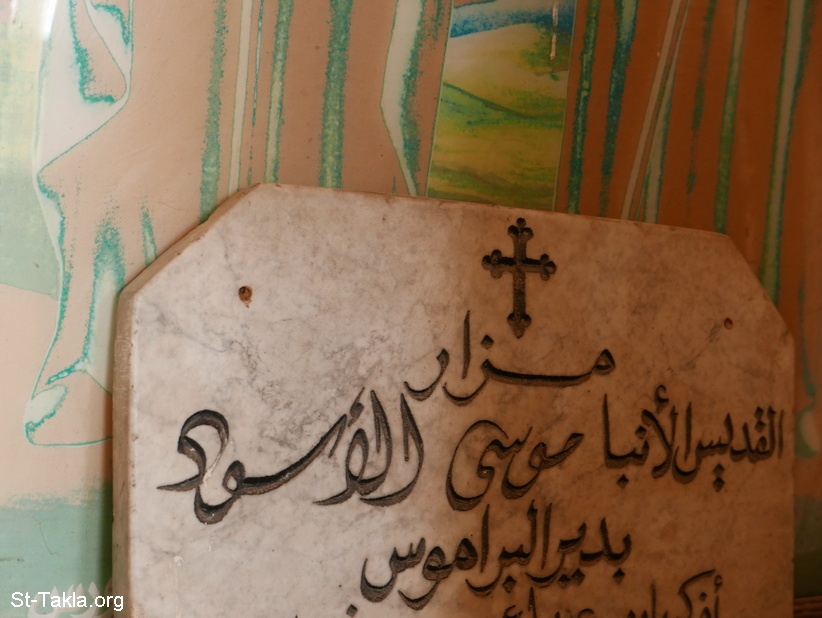 مزار
القديس الأنبا موسى الأسود
بدير البراموس
St-Takla.org